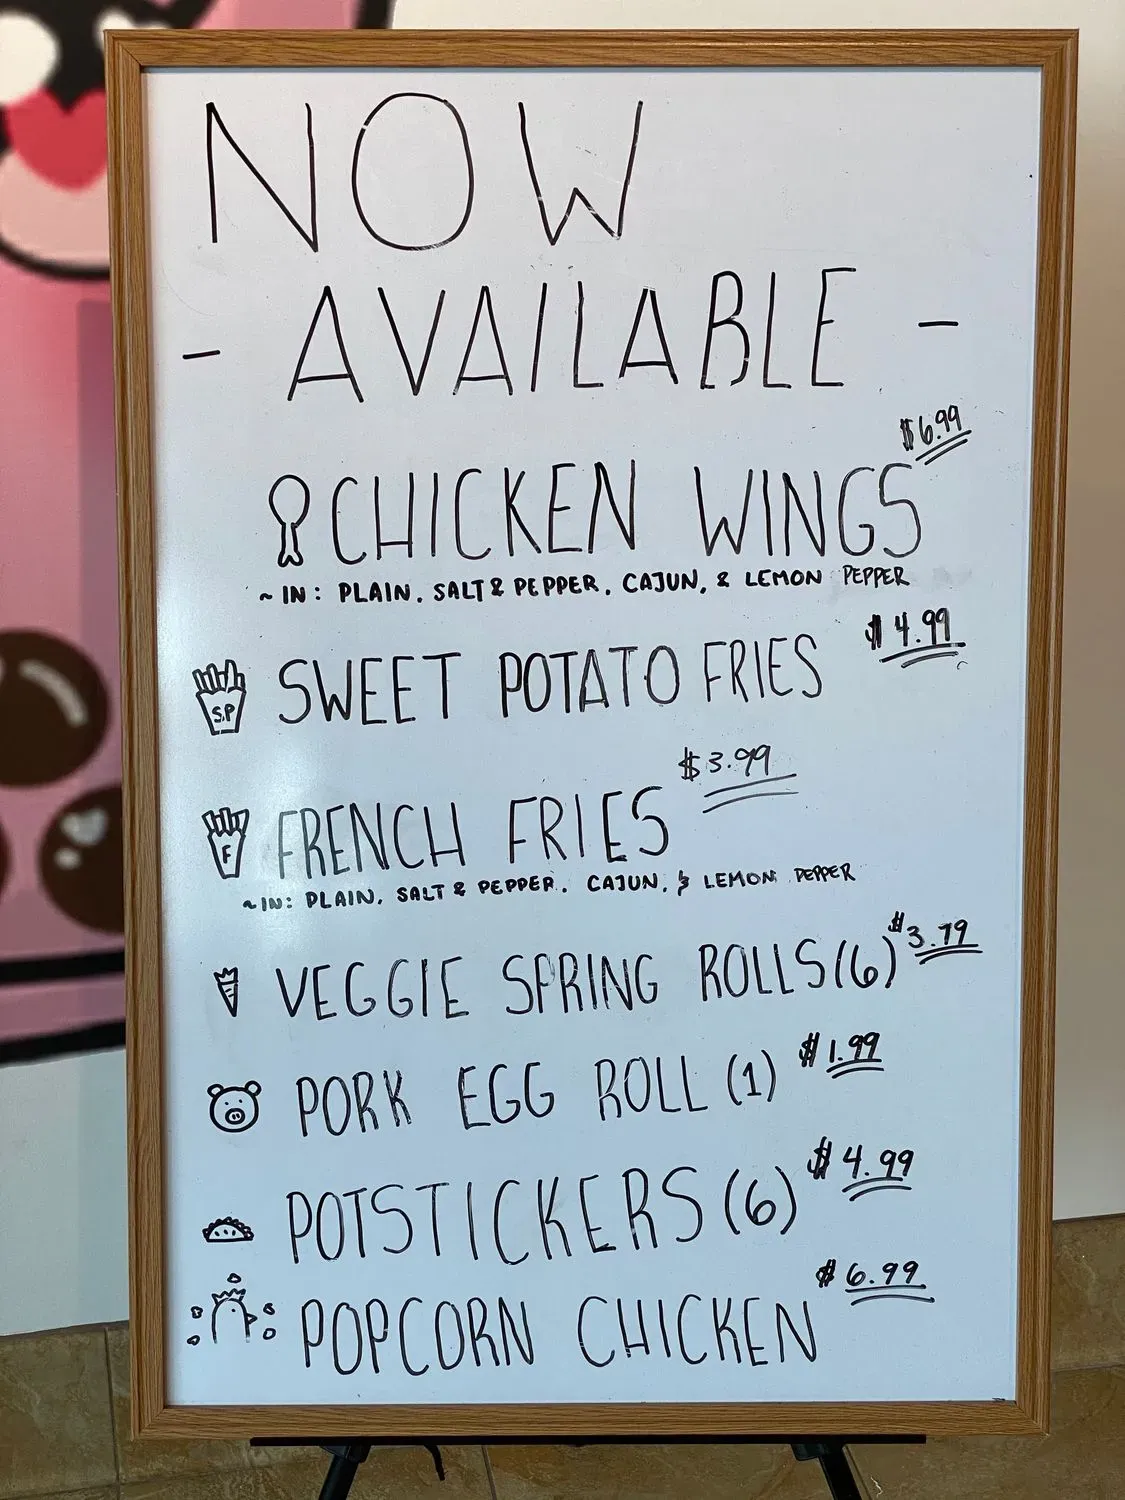 NOW
- AVAILABLE -
$6.99
CHICKEN WINGS
~ IN: PLAIN, SALT & PEPPER, CAJUN, & LEMON PEPPER
$4.99
S.P SWEET POTATO FRIES
$3.99
F FRENCH FRIES
~ IN: PLAIN, SALT & PEPPER, CAJUN, & LEMON PEPPER
VEGGIE SPRING ROLLS (6) $3.79
PORK EGG ROLL (1) $1.99
POTSTICKERS (6) $4.99
POPCORN CHICKEN $6.99